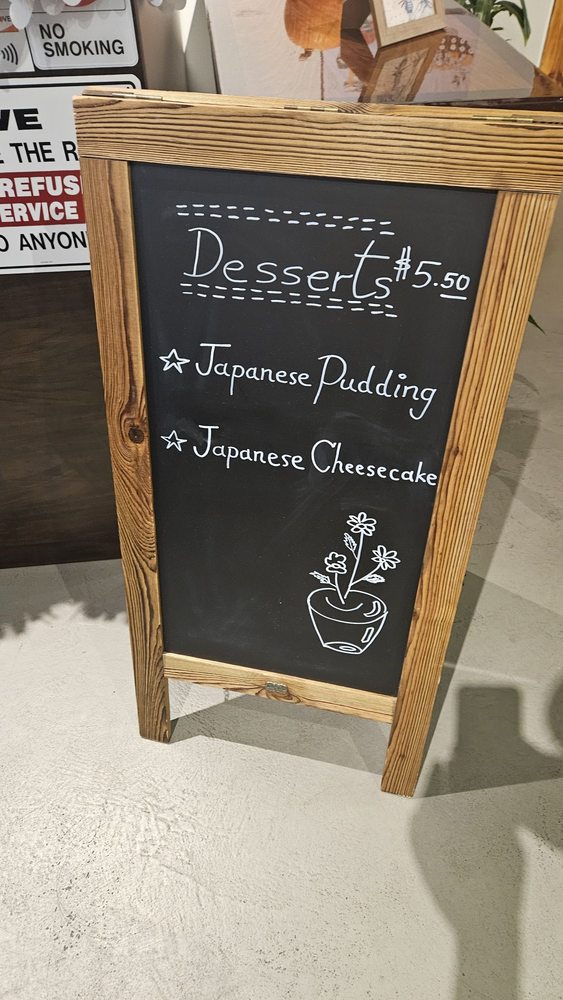 NO
SMOKING
THE R
REFUS
ERVICE
ANYON
Desserts $5.50
☆ Japanese Pudding
☆ Japanese Cheesecake